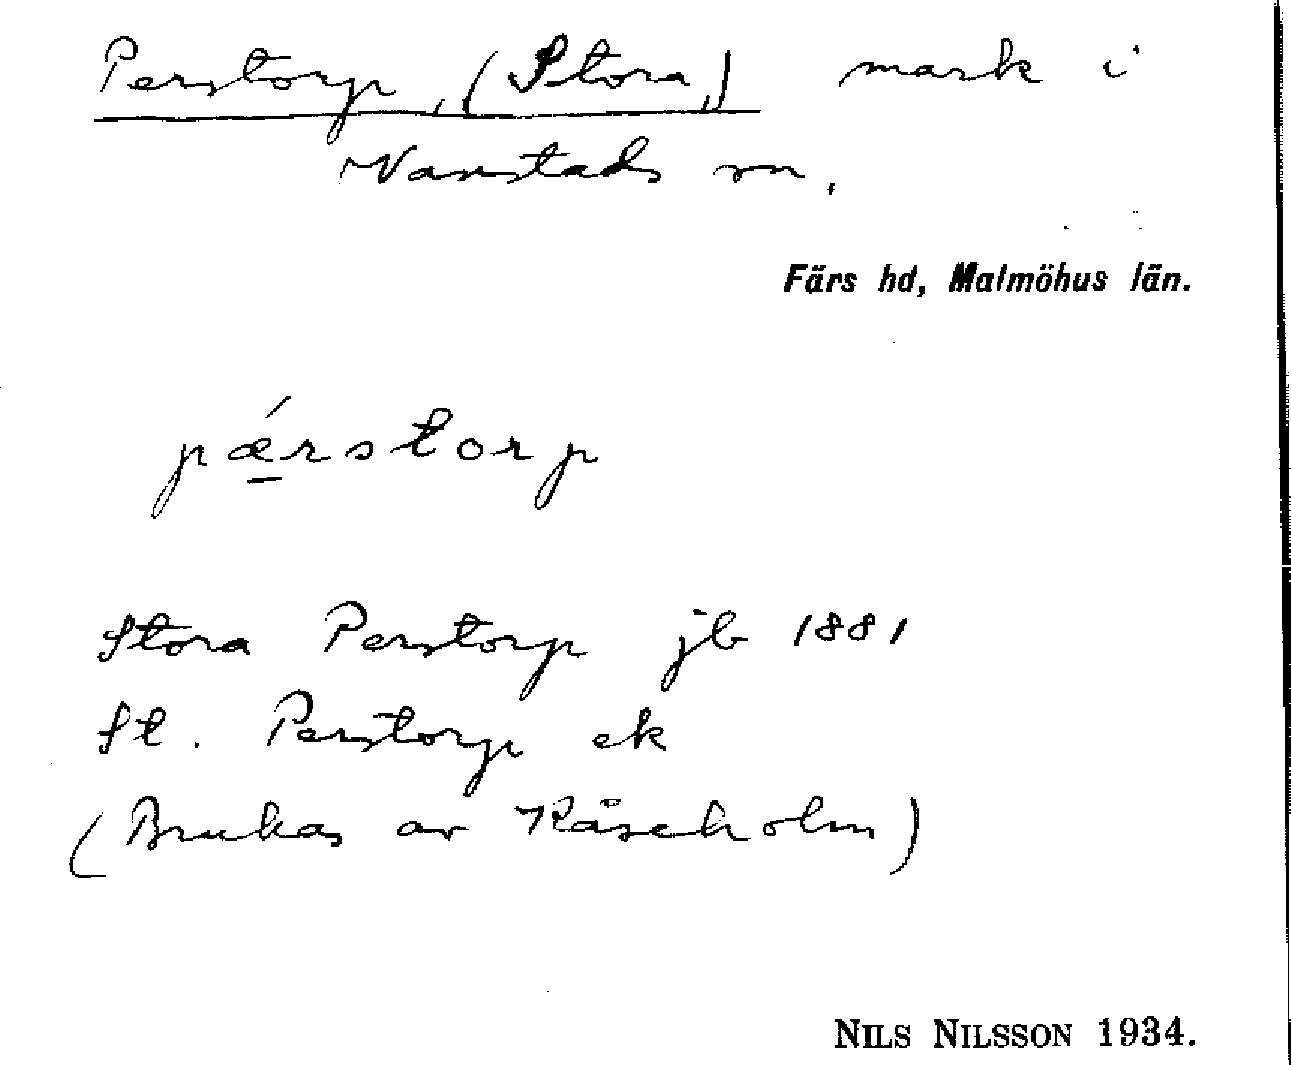 Perstorp, (Stora,) mark i
Vanstads sn.
Färs hd, Malmöhus län.
pǽ̱rstorp
Stora Perstorp jb 1881
St. Perstorp ek
(Brukas av Kåseholm)
NILS NILSSON 1934.